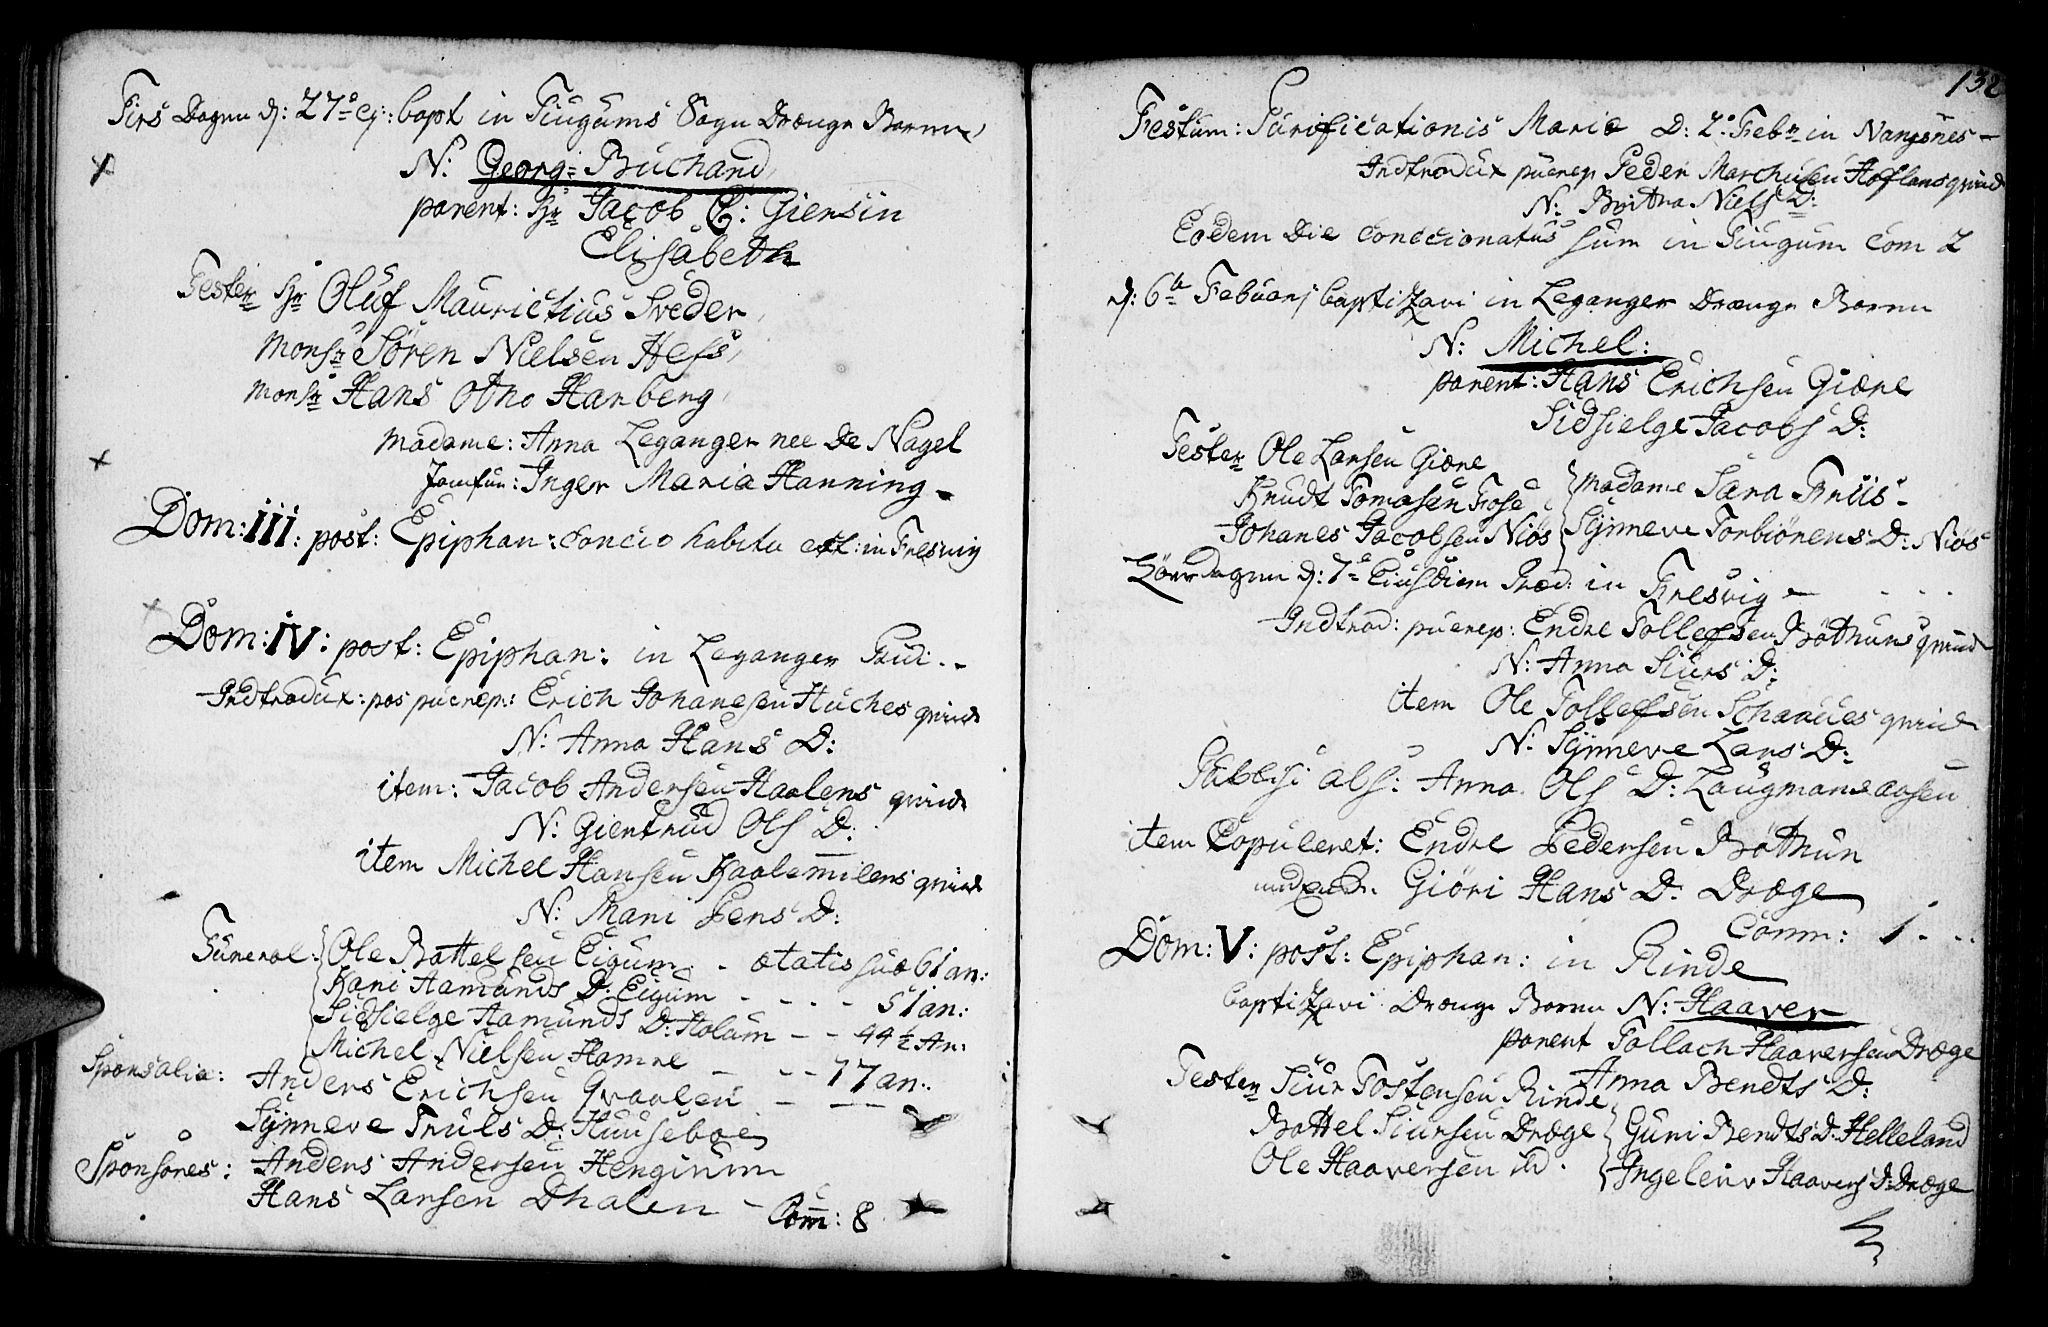 Tirs Dagen d: 27de ej: bapt in Tiugums Sogn Drænge Barnn,
N: Georg= Buchand,
parent: Hr Jacob C: Giersin
Elisabeth
Tester Hr Oluf Maurictius Sveder,
Monsr Sören Nielsen Hess,
Monsr Hans Otho Harberg,
Madame: Anna Leganger nee De Nagel
Jomfru: Inger Maria Hanning
Dom: III: post: Epiphan: concio habita est: in Fresvig
Dom: IV: post: Epiphan: in Leganger
Indtrodux: pos puerep: Erich Johanesen Huches qvind
N: Anna Hans D:
item: Jacob Andersen Haalens qvind
N: Giertrud Ols D:
item Michel Hansen qvind
N: Mari Jens D:
Funeral: Ole Bottelsen Eigum - ætatis suæ 61 an:
Kari Aamunds D: Eigum - - - - 51 an:
Sidsielge Aamunds D: Holum - - 44 ½ An:
Michel Nielsen Hamre - - - 17 an:
Sponsalia: Anders Erichsen Qvaalen - -
Synneve Truls D: Huuseboe
Sponsores: Anders Andersen Hengium
Hans Larsen Dhalen -
Com: 8
132
Festum: Purificationis Mariæ D: 2: Febr in Nangsnes -
Indtrodux puerep Peder Marchusen Hoflands qvind
N: Britha Niels D:
Eodem Die conccionatus sum in Tiugum Com 2
d: 6te Febuarj baptizavi in Leganger Drænge Barnn
N: Michel:
parent: Hans Erichsen Giære
Sidsielge Jacobs D:
Tester Ole Larsen Giære
Knudt Tomasen Fose
Johanes Jacobsen Niøs
Madame Sara Friis -
Synneve Torbiörens D: Niøs
Löverdagen d: 7de Eiusdiem Præd: in Fresvig
Indtrod: puerep: Endre Tollefsen Böthuns qvind
N: Anna Siurs D:
item Ole Tollefsen qvind
N: Synneve Lars D:
Publise als: Anna Ols D:
item Copuleret: Endre Pedersen Böthun
Giöri Hans D: Dræge
Comm: 1 - - -
Dom: V: post: Epiphan: in Rinde
baptizavi Drænge Barnn N: Haaver
parent Tollach Haaversen Dræge
Anna Bendts D:
Tester Siur Tostensen Rinde
Bottel Siursen Dræge
Ole Haaversen id.
Guri Bendts D: Helleland
Ingeleiv Haavers D: Dræge